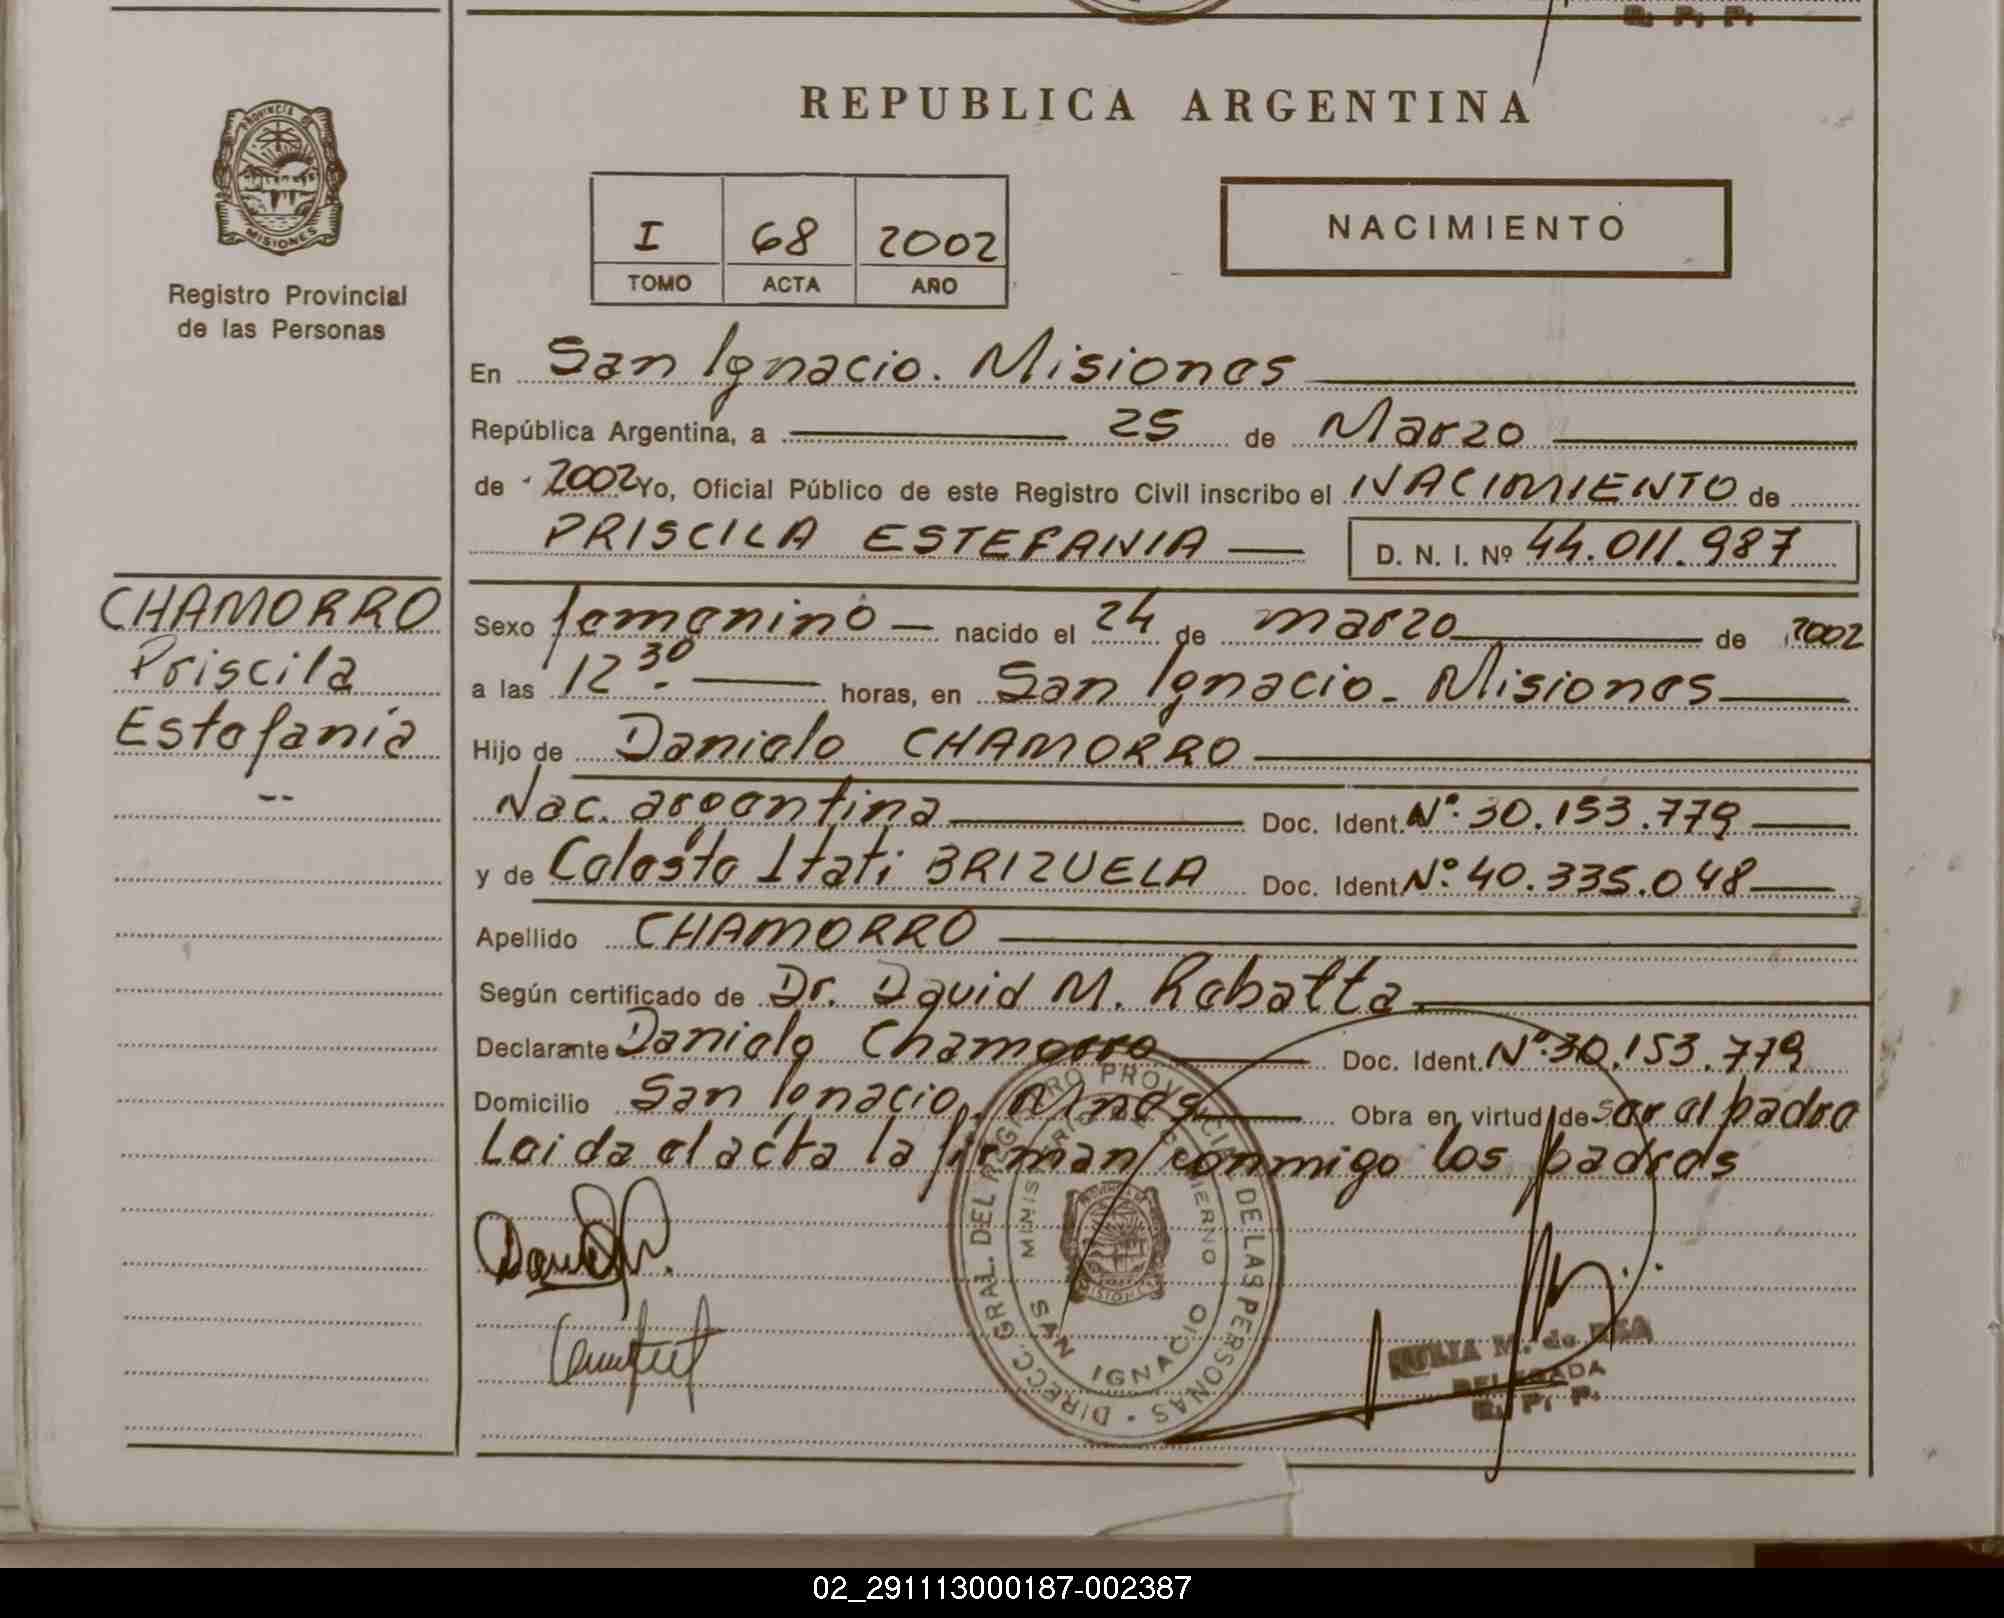 R. P. P.
REPUBLICA ARGENTINA
PROVINCIA DE
MISIONES
Registro Provincial
de las Personas
I 68 2002
TOMO ACTA AÑO
NACIMIENTO
En San Ignacio. Misiones
República Argentina, a 25 de Marzo
de 2002 Yo, Oficial Público de este Registro Civil inscribo el NACIMIENTO de
PRISCILA ESTEFANIA D. N. I. Nº 44.011.987
CHAMORRO
Priscila
Estefanía
--
Sexo femenino nacido el 24 de marzo de 2002
a las 12 30. horas, en San Ignacio - Misiones
Hijo de Daniel CHAMORRO
Nac. argentina Doc. Ident. Nº 30.153.779
y de Celeste Itati BRIZUELA Doc. Ident. Nº 40.335.048
Apellido CHAMORRO
Según certificado de Dr. David M. Rebatta
Declarante Daniel Chamorro Doc. Ident. Nº 30.153.779
Domicilio San Ignacio. Mnes Obra en virtud de ser el padre
Leida el acta la firman conmigo los padres
DIRECC. GRAL. DEL REGISTRO PROVINCIAL DE LAS PERSONAS
MINISTERIO DE GOBIERNO
SAN IGNACIO
M. de
DELEGADA
R. P. P.
02_291113000187-002387